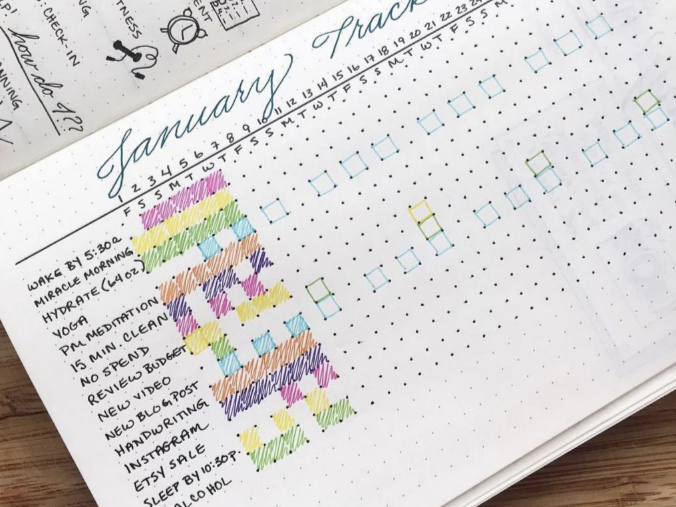 CHECK-IN
how do I??
January Track
1 2 3 4 5 6 7 8 9 10 11 12 13 14 15 16 17 18 19 20 21 22 23
F S S M T W T F S S M T W T F S S M T W T F S S M
WAKE BY 5:30a
MIRACLE MORNING
HYDRATE (64 oz)
YOGA
PM MEDITATION
15 MIN. CLEAN
NO SPEND
REVIEW BUDGET
NEW VIDEO
NEW BLOG POST
HANDWRITING
INSTAGRAM
ETSY SALE
SLEEP BY 10:30p.
ALCOHOL